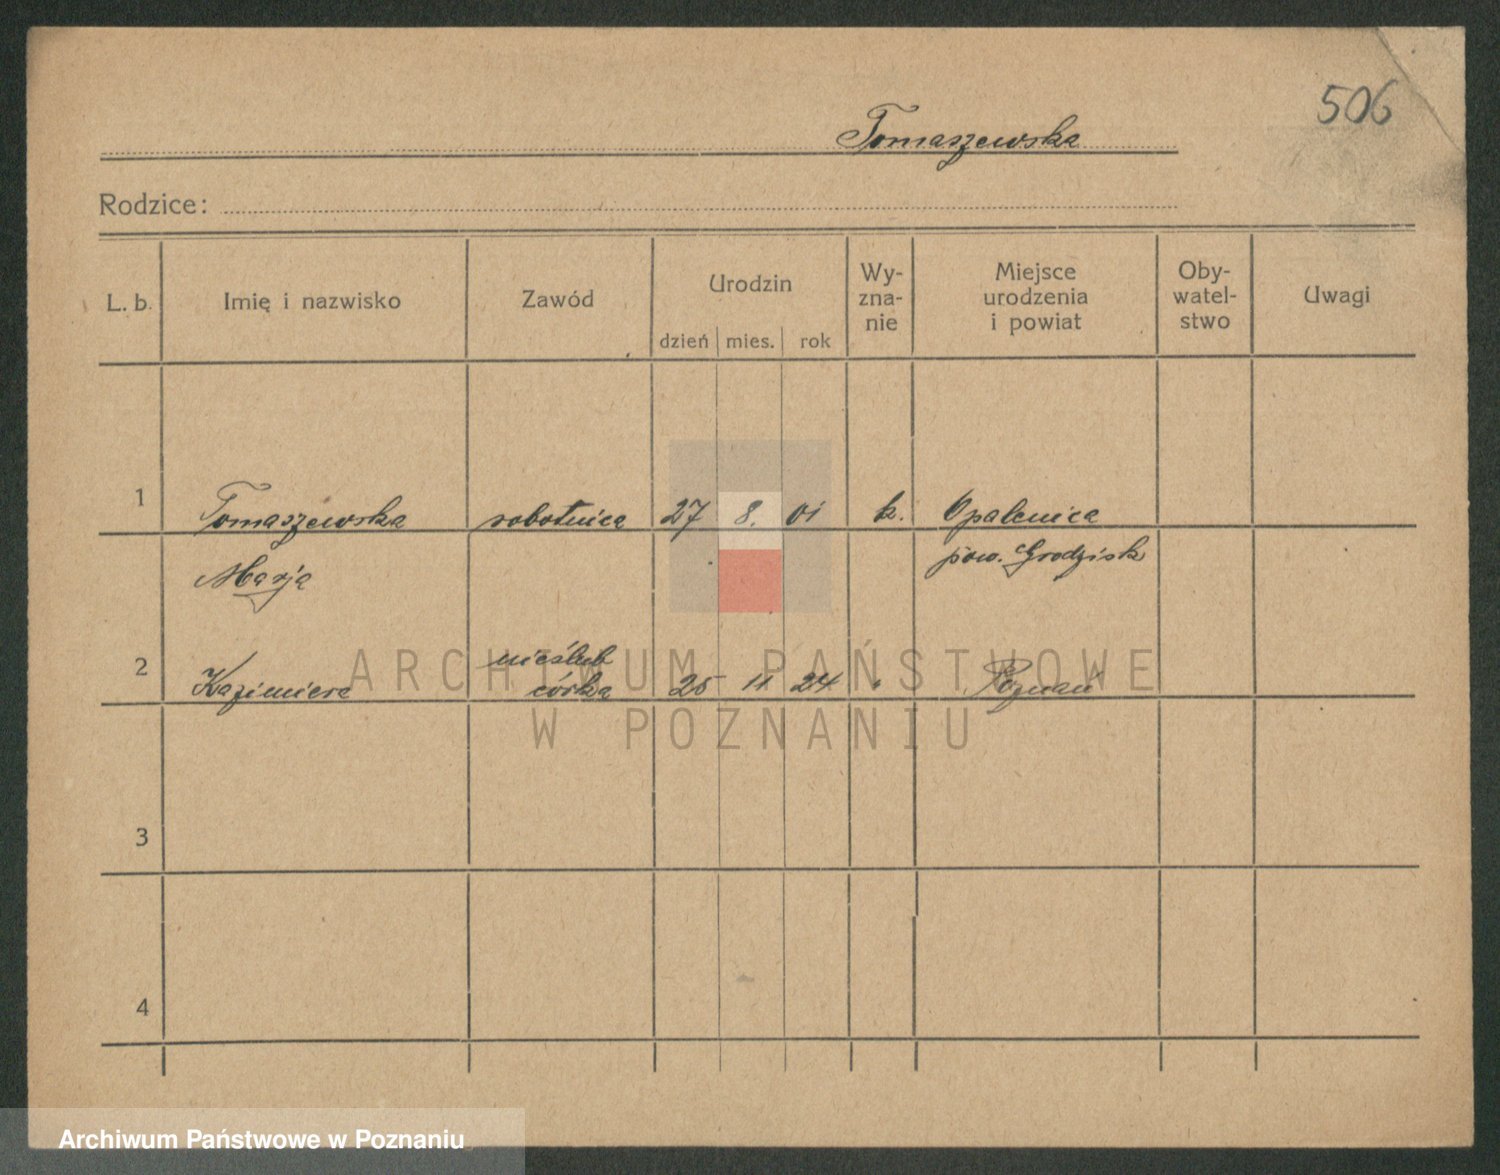 506
Tomaszewska
Rodzice:
L. b. Imię i nazwisko Zawód Urodzin dzień mies. rok Wy-zna-nie Miejsce urodzenia i powiat Oby-watel-stwo Uwagi
1 Tomaszewska robotnica 27 8. 01 k. Opalenica
Marja pow. Grodzisk
nieślub
2 Kazimiera córka 25 11 24 " Poznań
3
4
ARCHIWUM PAŃSTWOWE
W POZNANIU
Archiwum Państwowe w Poznaniu